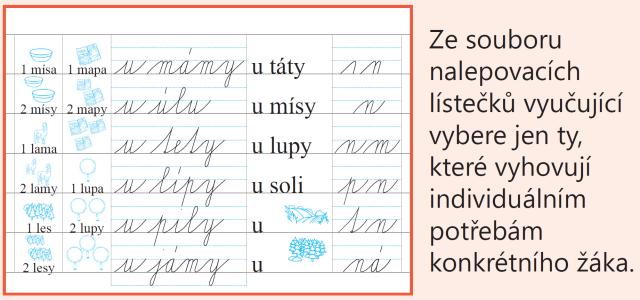 1 mísa 1 mapa u mámy u táty n
2 mísy 2 mapy u úlu u mísy n
1 lama u tety u lupy nm
2 lamy 1 lupa u lípy u soli pn
1 les 2 lupy u píly u tn
2 lesy u jámy u ná
Ze souboru
nalepovacích
lístečků vyučující
vybere jen ty,
které vyhovují
individuálním
potřebám
konkrétního žáka.